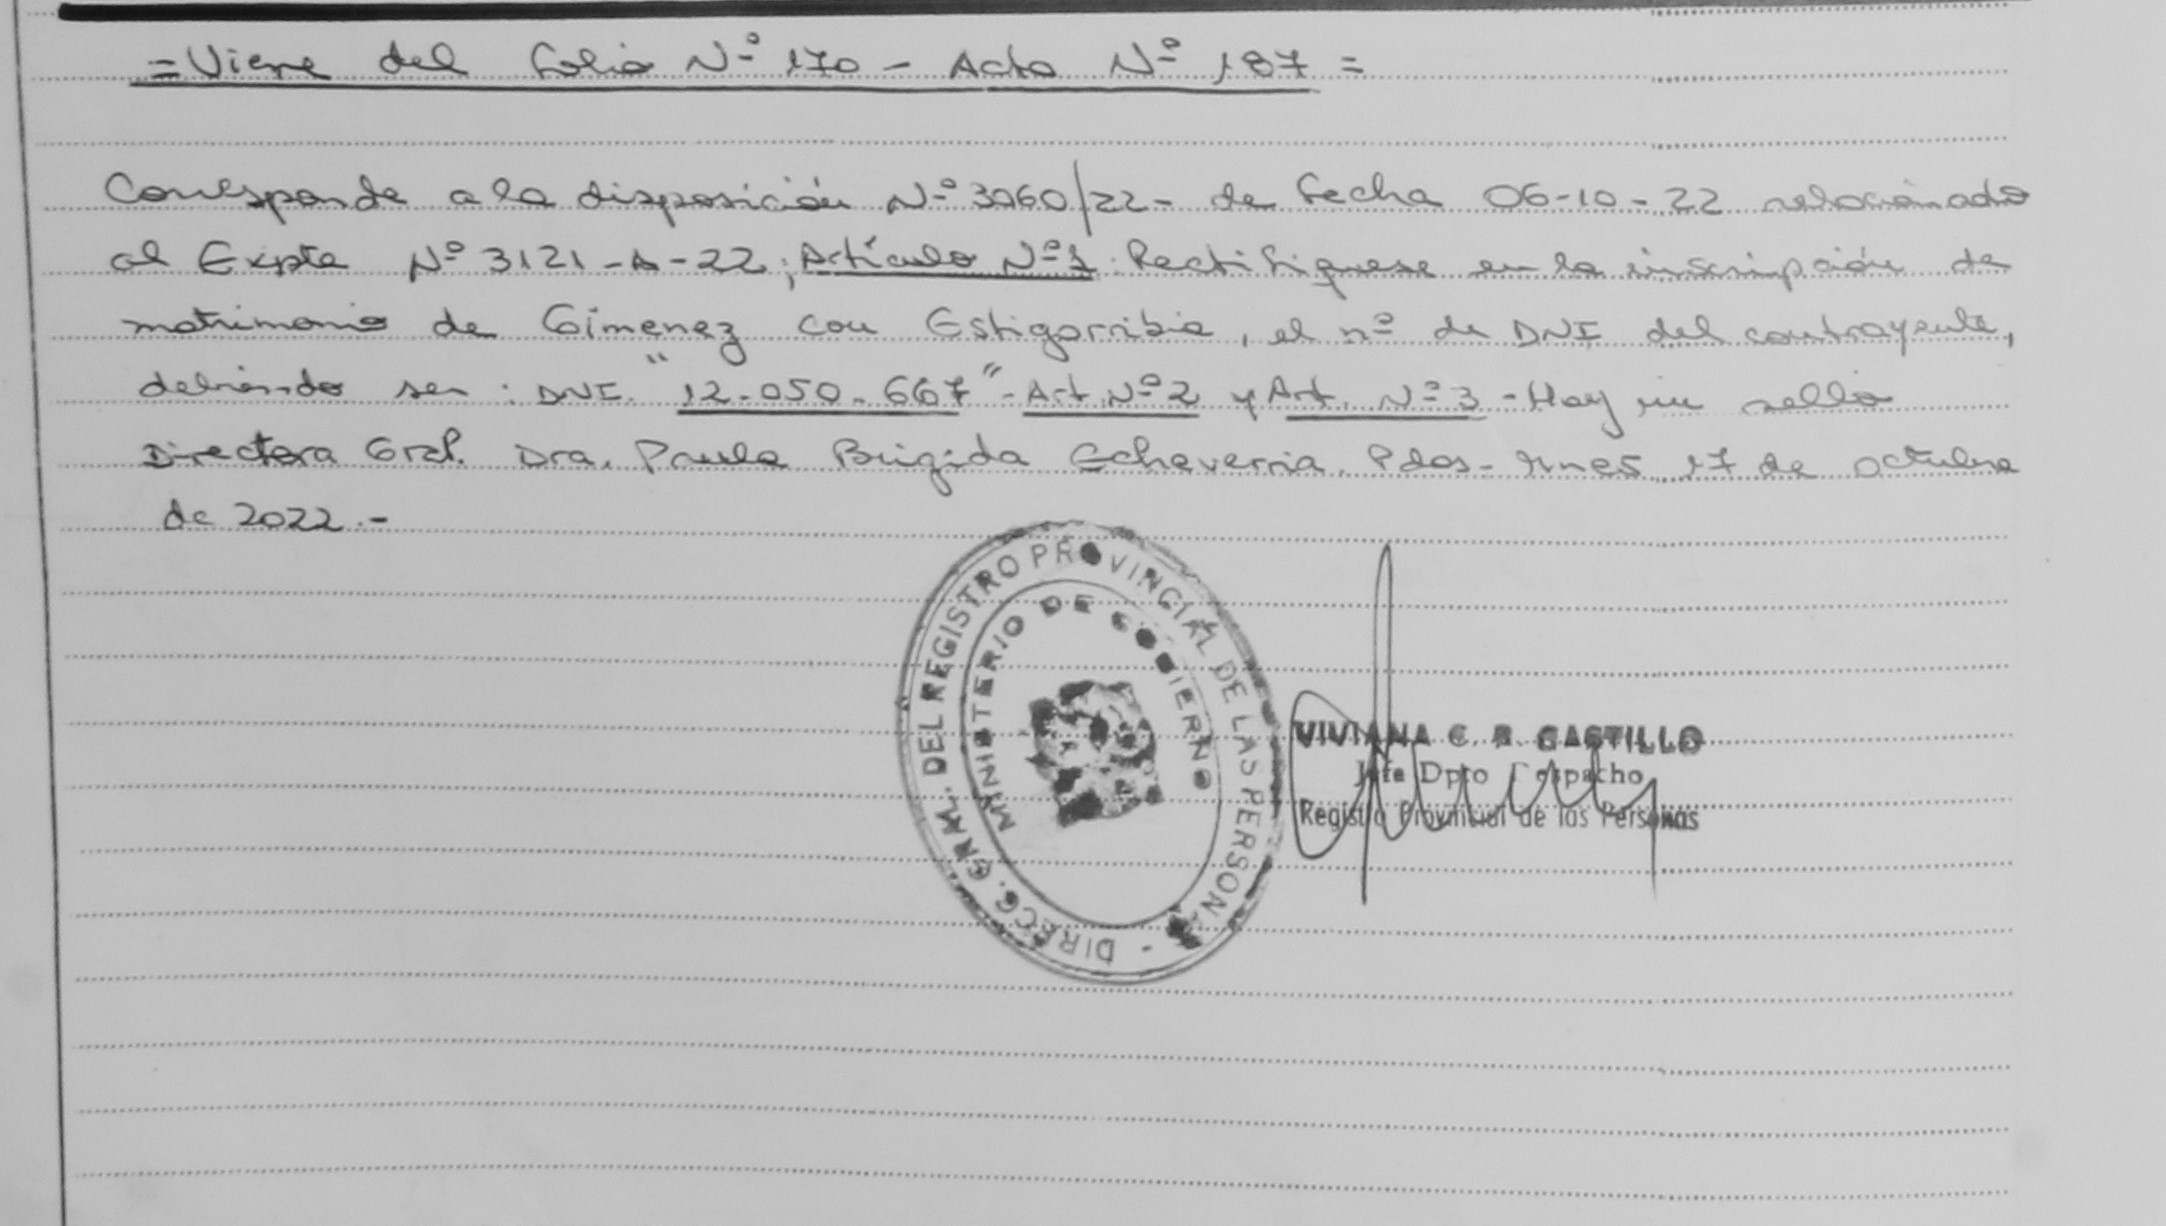 =Viene del Folio Nº 170 - Acta Nº 187=
Corresponde a la disposición Nº 3060/22- de fecha 06-10-22 relacionado
al Expte Nº 3121-A-22; Artículo Nº1. Rectifiquese en la inscripción de
matrimonio de Gimenez con Estigarribia, el nº de DNI del contrayente,
debiendo ser: DNI. "12.050.667" - Art. Nº2 y Art. Nº3 - Hay un sello
Directora Gral. Dra. Paula Brigida Echeverria. Pdas-Mnes 17 de octubre
de 2022.-
DIRECG. GRAL. DEL REGISTRO PROVINCIAL DE LAS PERSONAS -
MINISTERIO DE GOBIERNO
VIVIANA C. R. CASTILLO
Jefa Dpto Despacho
Registro Provincial de las Personas